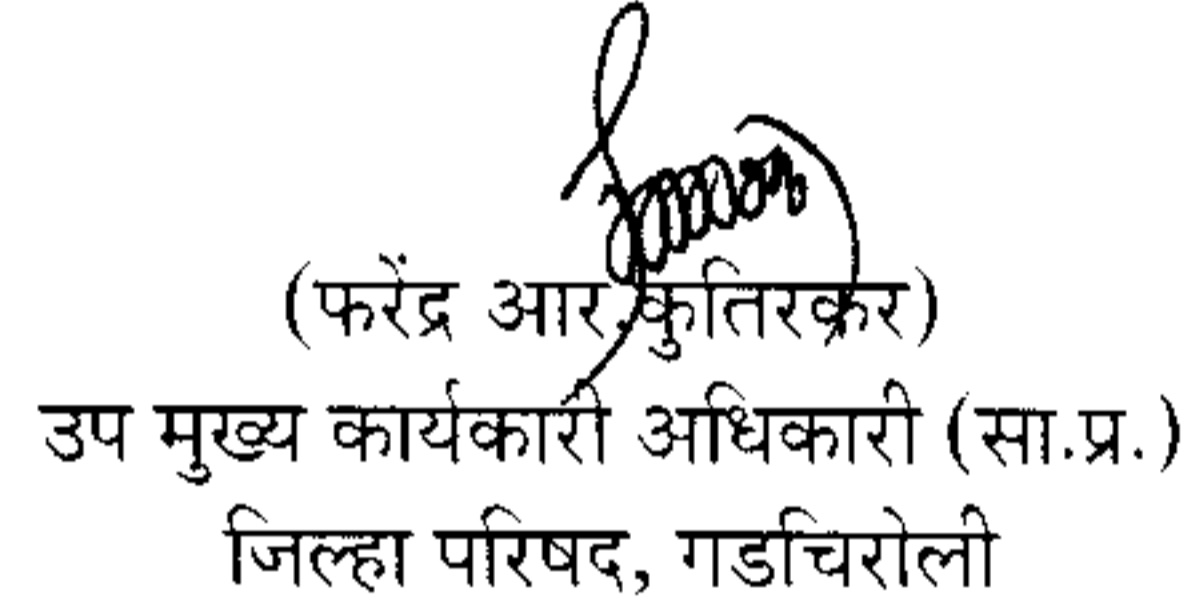 (फरेंद्र आर.कुतिरकर)
उप मुख्य कार्यकारी अधिकारी (सा.प्र.)
जिल्हा परिषद, गडचिरोली